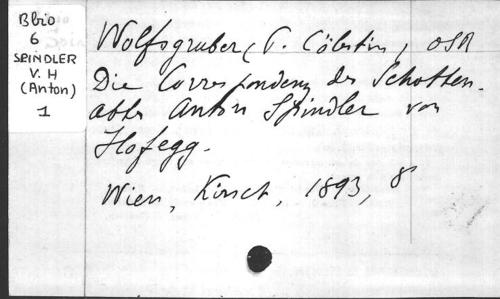 Bbio
6
SPINDLER
V. H
(Anton)
1
Wolfsgruber (P. Cölestin, OSB
Die Correspondenz des Schotten-
abtes Anton Spindler von
Hofegg.
Wien, Kirsch, 1893, 8°